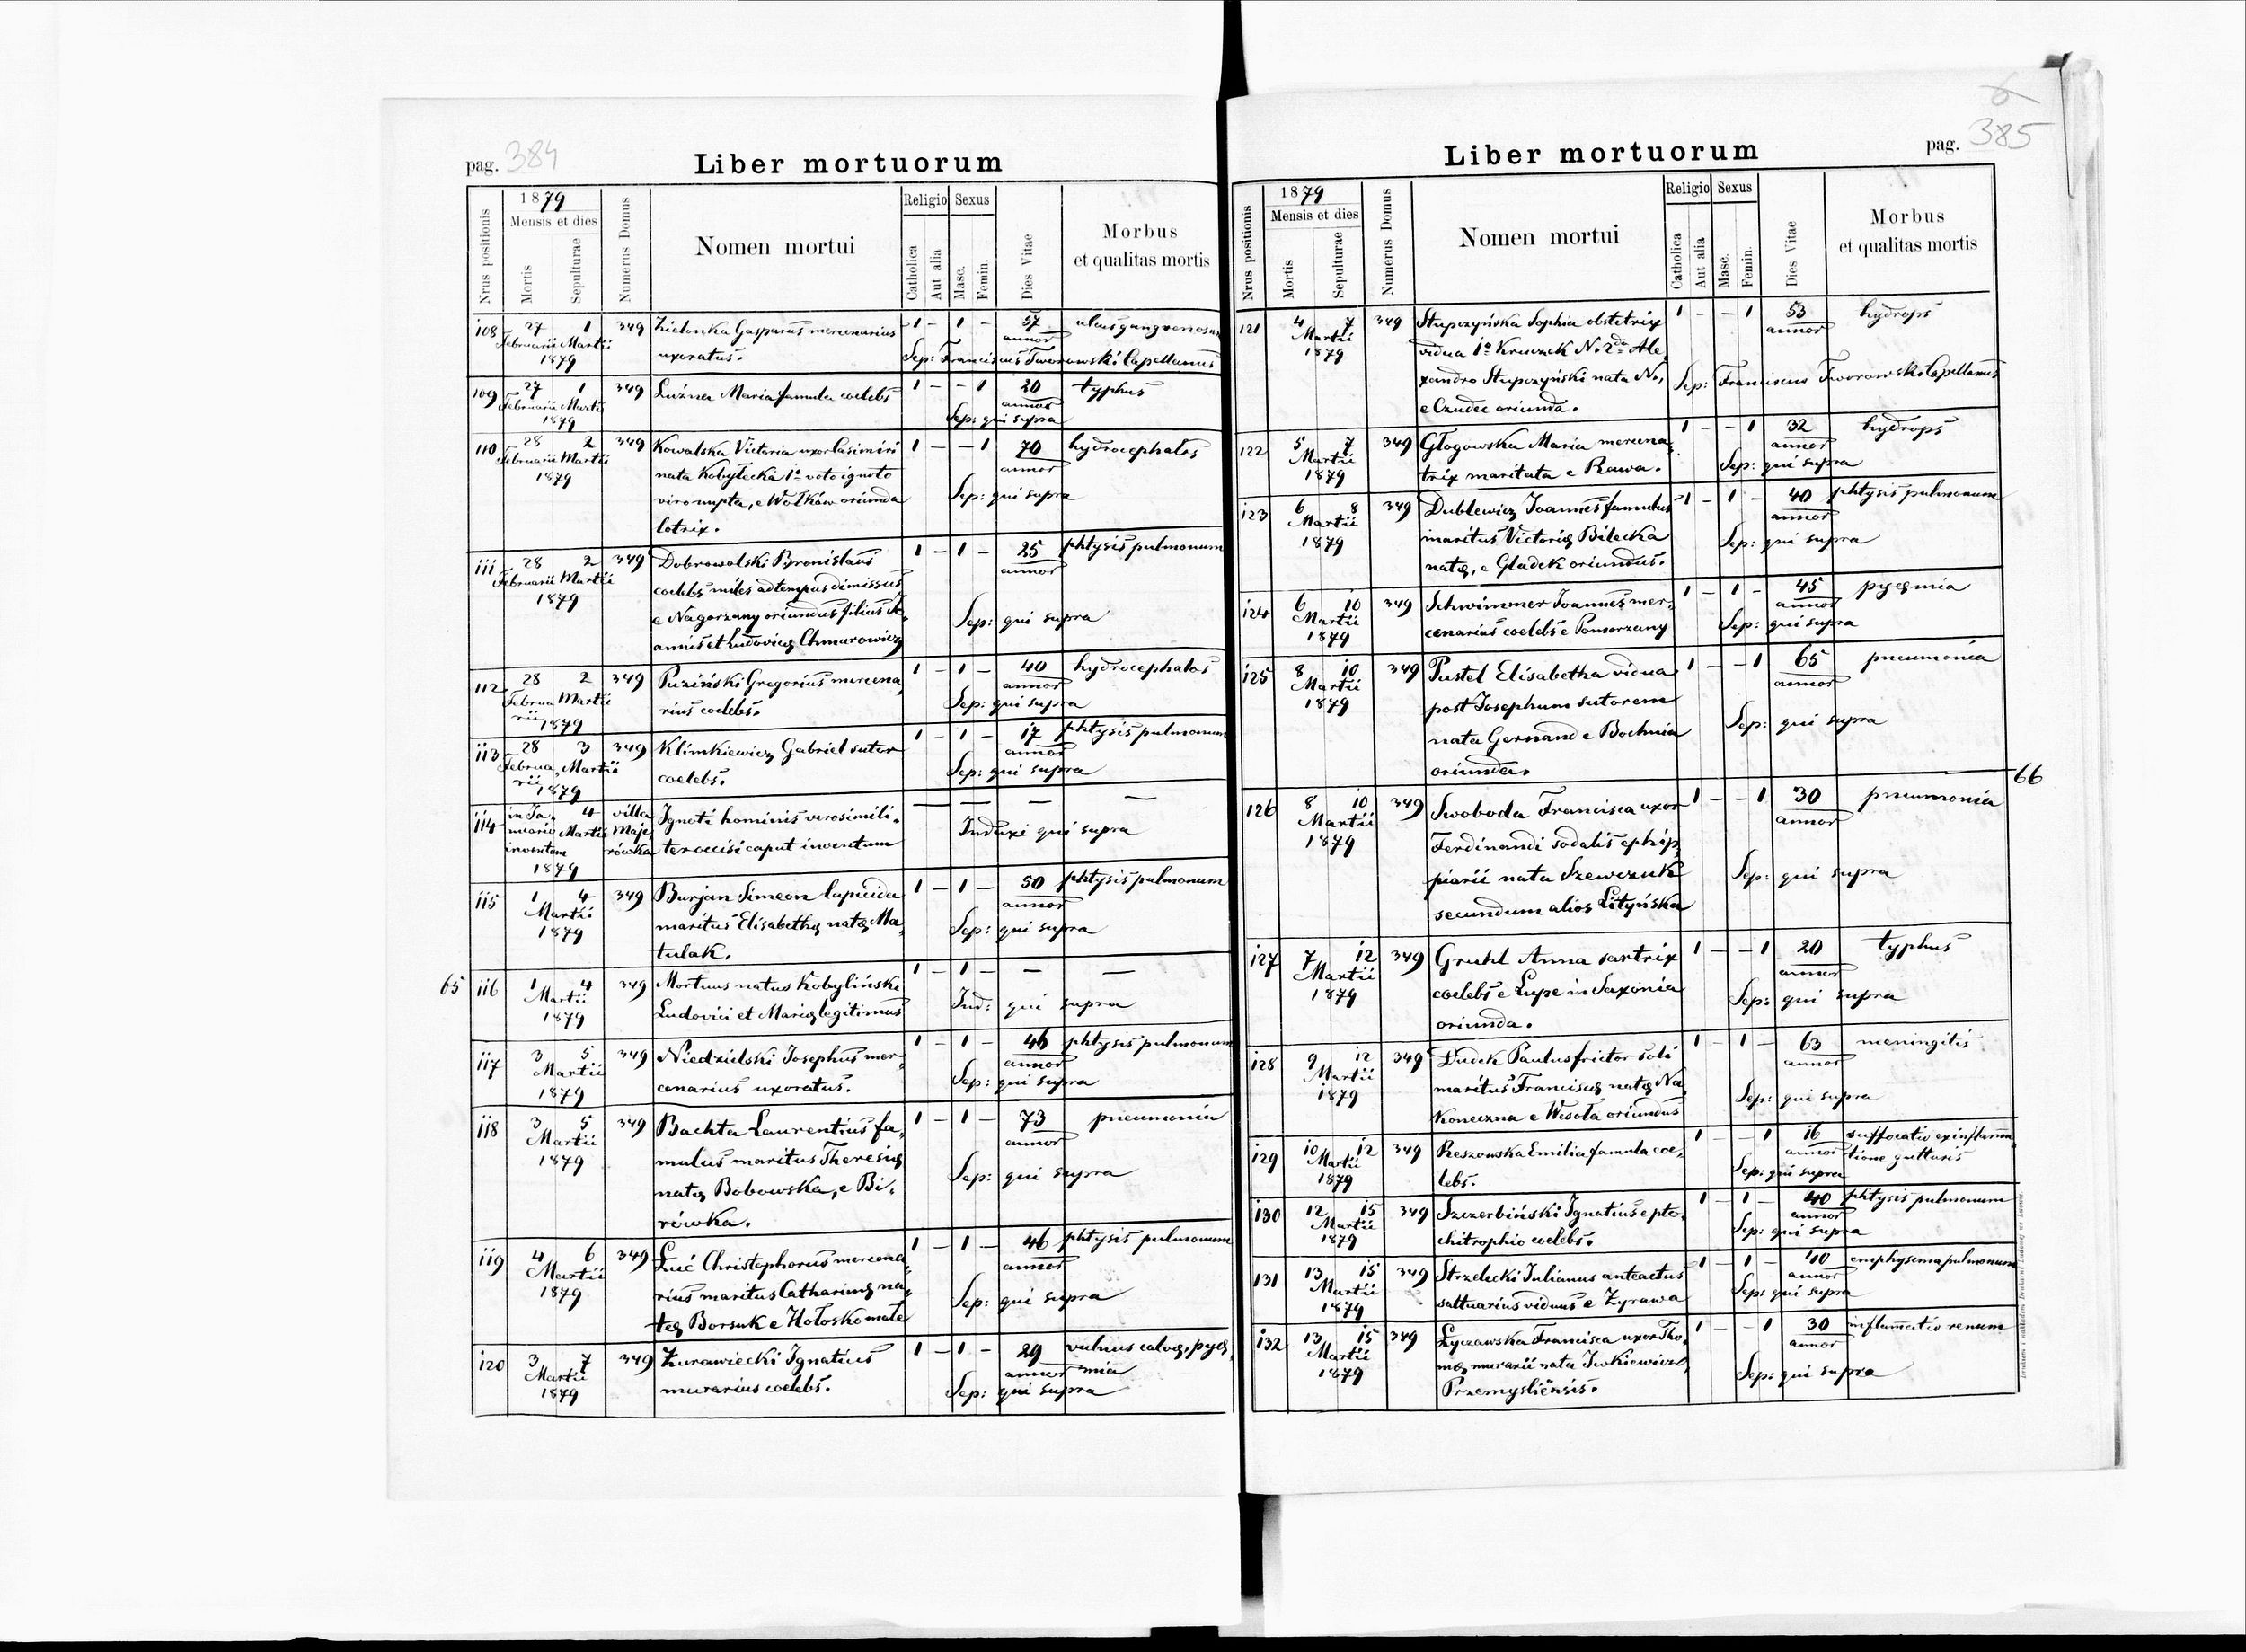 pag. 384
Liber mortuorum
Nrus positionis
1879
Mensis et dies
Mortis
Sepulturae
Numerus Domus
Nomen mortui
Religio
Catholica
Aut alia
Sexus
Masc.
Femin.
Dies Vitae
Morbus
et qualitas mortis
108 27 1 349 Zielonka Gasparus mercenarius 1 - 1 - 57 ulcus gangrenosum
Februarii Martii annor
1879 uxoratus. Sep: Franciscus Tworowski Capellanus
109 27 1 349 Luźna Maria famula coelebs 1 - - 1 20 typhus
Februarii Martii annor
1879 Sep: qui supra
110 28 2 349 Kowalska Victoria uxor Casimiri 1 - - 1 70 hydrocephalos
Februarii Martii nata Kobyłecka 1º voto ignoto annor
1879 viro nupta, e Wołków oriunda Sep: qui supra
lotrix.
111 28 2 349 Dobrowolski Bronislaus 1 - 1 - 25 phtysis pulmonum
Februarii Martii coelebs miles ad tempus dimissus annor
1879 e Nagorzany oriundus filius
Sep: qui supra
annis et Ludovicę Chmurowicz
112 28 2 349 Puziński Gregorius mercena, 1 - 1 - 40 hydrocephalos
Februa Martii annor
rii 1879 rius coelebs. Sep: qui supra
113 28 3 349 Klimkiewicz Gabriel sutor 1 - 1 - 17 phtysis pulmonum
Februa, Martii annor
rii 1879 coelebs. Sep: qui supra
114 in Ja, 4 villa Ignoti hominis verosimili, — — — —
nuario Martii Maje,
inventum rówka ter occisi caput inventum Induxi qui supra
1879
115 1 4 349 Burjan Simeon lapicida 1 - 1 - 50 phtysis pulmonum
Martii maritus Elisabethę natę Ma, annor
1879 tulak. Sep: qui supra
65 116 1 4 349 Mortuus natus Kobyliński 1 - 1 - — —
Martii Ludovici et Marię legitimus Ind: qui supra
1879
117 3 5 349 Niedzielski Josephus mer, 1 - 1 - 46 phtysis pulmonum
Martii annor
1879 cenarius uxoratus. Sep: qui supra
118 3 5 349 Bachta Laurentius fa, 1 - 1 - 73 pneumonia
Martii mulus maritus Theresię annor
1879 natę Bobowska, e Bi, Sep: qui supra
rówka.
119 4 6 349 Łuć Christophorus mercena, 1 - 1 - 46 phtysis pulmonum
Martii rius maritus Catharinę na, annor
1879 tę Borsuk e Hołosko małe Sep: qui supra
120 3 7 349 Żurawiecki Ignatius 1 - 1 - 29 vulnus calvę, pyę,
Martii annor mia
1879 murarius coelebs. Sep: qui supra
6
385
Liber mortuorum
pag.
Nrus positionis
1879
Mensis et dies
Mortis
Sepulturae
Numerus Domus
Nomen mortui
Religio
Catholica
Aut alia
Sexus
Masc.
Femin.
Dies Vitae
Morbus
et qualitas mortis
121 4 7 349 Stupczyńska Sophia obstetrix 1 - - 1 53 hydrops
Martii vidua 1º Kruczek N. 2do Ale, annor
1879 xandro Stupczyński nata N., Sep: Franciscus Tworowski Capellanus
e Czudec oriunda.
122 5 7 349 Głogowska Maria mercena, 1 - - 1 32 hydrops
Martii annor
1879 trix maritata e Rawa. Sep: qui supra
123 6 8 349 Dublewicz Joannes famulus 1 - 1 - 40 phtysis pulmonum
Martii maritus Victorię Bilecka annor
1879 natę, e Gladek oriundus. Sep: qui supra
124 6 10 349 Schwimmer Joannes mer, 1 - 1 - 45 pyęmia
Martii annor
1879 cenarius coelebs e Pomorzany Sep: qui supra
125 8 10 349 Pustel Elisabetha vidua 1 - - 1 65 pneumonia
Martii post Josephum sutorem annor
1879 nata Gernand e Bochnia Sep: qui supra
oriunda.
66
126 8 10 349 Swoboda Francisca uxor 1 - - 1 30 pneumonia
Martii Ferdinandi sodalis ephip, annor
1879 piarii nata Szewczuk Sep: qui supra
secundum alios Lityńska
127 7 12 349 Gruhl Anna sartrix 1 - - 1 20 typhus
Martii coelebs e Lupe in Saxonia annor
1879 oriunda. Sep: qui supra
128 9 12 349 Dudek Paulus frictor soli 1 - 1 - 63 meningitis
Martii maritus Franciscę natę Na, annor
1879 Koneczna e Wesoła oriundus Sep: qui supra
129 10 12 349 Reszowska Emilia famula coe, 1 - - 1 16 suffocatio ex inflamma,
Martii annor tione gutturis
1879 lebs. Sep: qui supra
130 12 15 349 Szczerbiński Ignatius e pto, 1 - 1 - 40 phtysis pulmonum
Martii annor
1879 chitrophio coelebs. Sep: qui supra
131 13 15 349 Strzelecki Julianus anteactus 1 - 1 - 40 emphysema pulmonum
Martii annor
1879 saltuarius viduus e Zyrawa Sep: qui supra
132 13 15 349 Łyczawska Francisca uxor Tho, 1 - - 1 30 inflamatio renum
Martii mę murarii nata Iwkiewicz annor
1879 Przemysliensis. Sep: qui supra